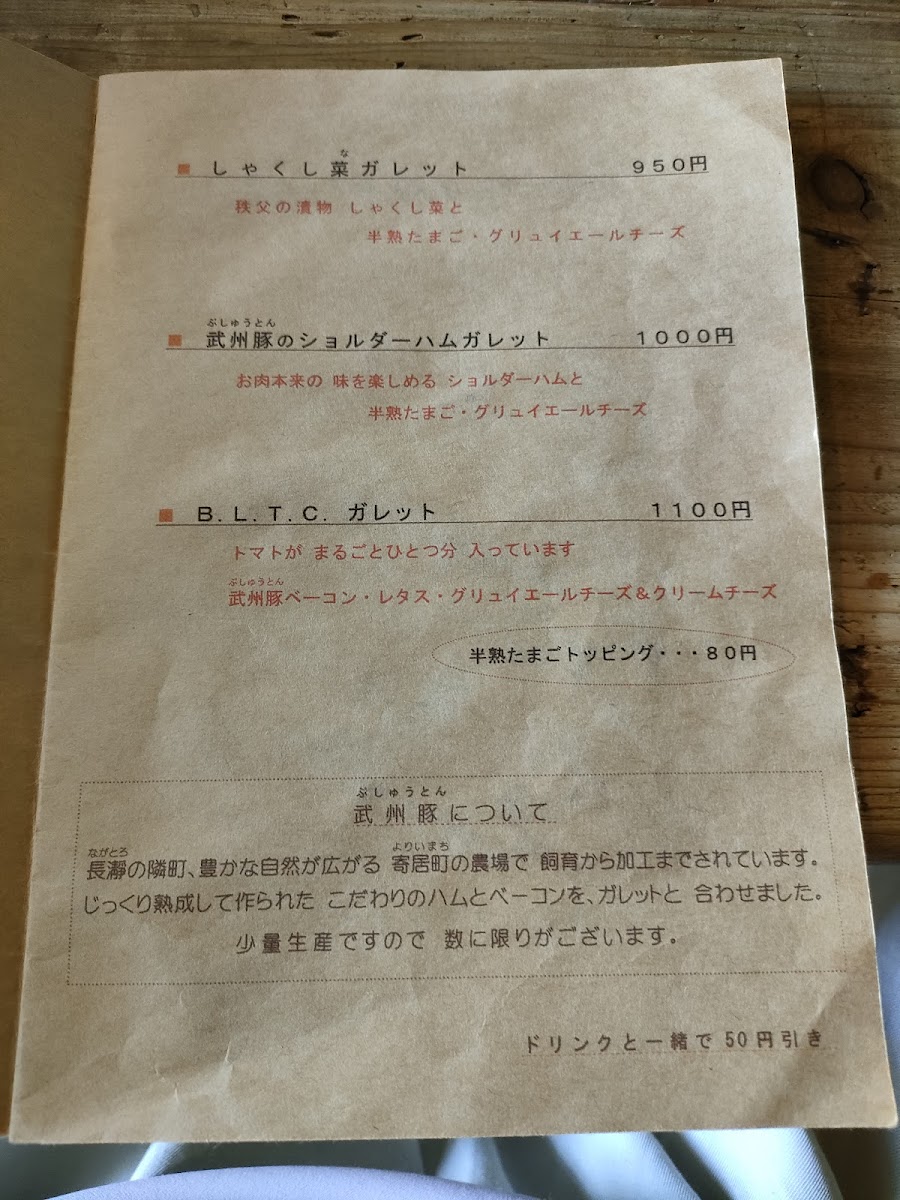 な
■ しゃくし菜ガレット 950円
秩父の漬物 しゃくし菜と
半熟たまご・グリュイエールチーズ
ぶしゅうとん
■ 武州豚のショルダーハムガレット 1000円
お肉本来の 味を楽しめる ショルダーハムと
半熟たまご・グリュイエールチーズ
■ B.L.T.C. ガレット 1100円
トマトが まるごとひとつ分 入っています
ぶしゅうとん
武州豚ベーコン・レタス・グリュイエールチーズ&クリームチーズ
半熟たまごトッピング・・・80円
ぶしゅうとん
武州豚について
ながとろ よりいまち
長瀞の隣町、豊かな自然が広がる 寄居町の農場で 飼育から加工までされています。
じっくり熟成して作られた こだわりのハムとベーコンを、ガレットと 合わせました。
少量生産ですので 数に限りがございます。
ドリンクと一緒で50円引き